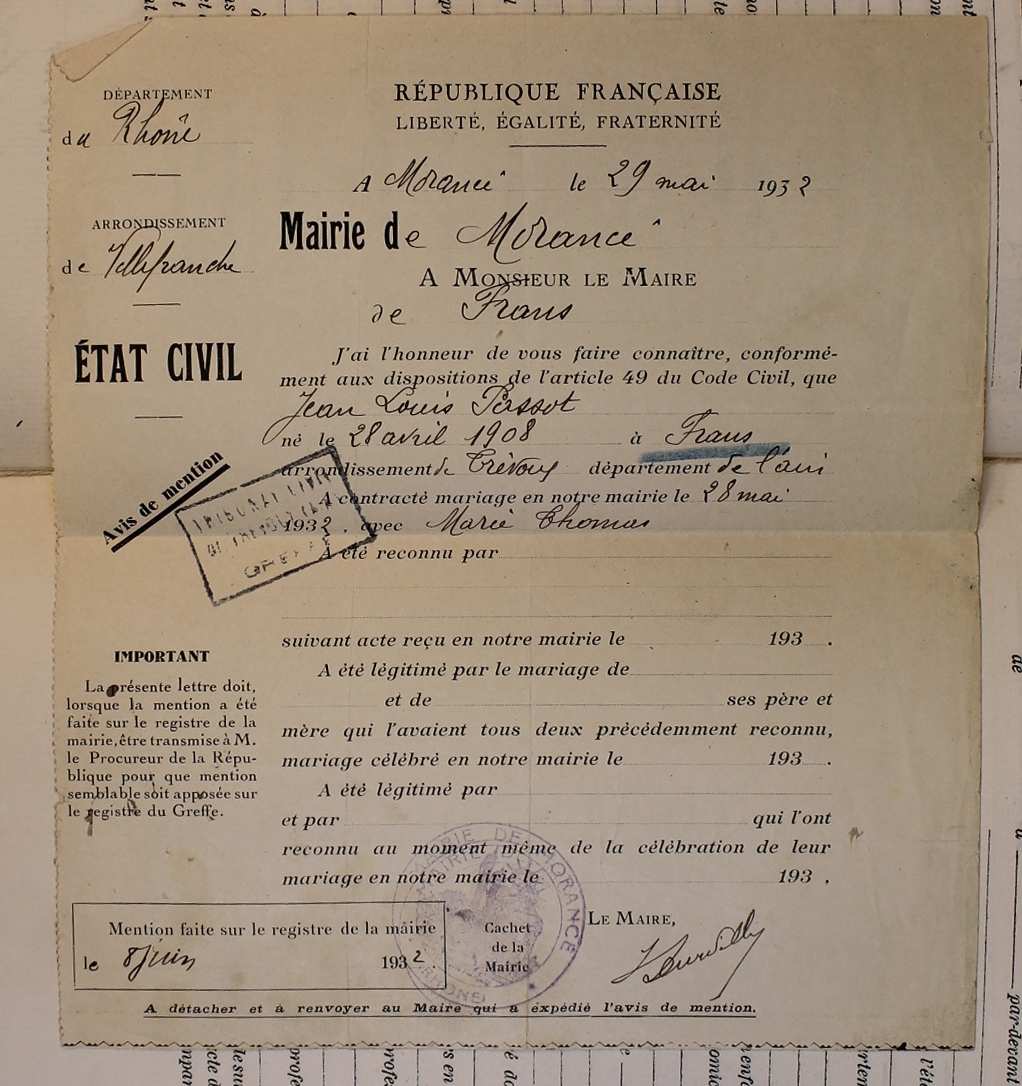 DÉPARTEMENT
du Rhône
ARRONDISSEMENT
de Villefranche
ÉTAT CIVIL
Avis de mention
RÉPUBLIQUE FRANÇAISE
LIBERTÉ, ÉGALITÉ, FRATERNITÉ
A Morancé le 29 mai 1932
Mairie de Morancé
A MONSIEUR LE MAIRE
de Frans
J'ai l'honneur de vous faire connaître, conformé-
ment aux dispositions de l'article 49 du Code Civil, que
Jean Louis Perssot
né le 28 avril 1908 à Frans
arrondissement de Trévoux département de l'ain
A contracté mariage en notre mairie le 28 mai
1932. avec Marie Thomas
A été reconnu par
TRIBUNAL CIVIL
GREFFE
suivant acte reçu en notre mairie le 193 .
A été légitimé par le mariage de
et de ses père et
mère qui l'avaient tous deux précédemment reconnu,
mariage célébré en notre mairie le 193 .
A été légitimé par
et par qui l'ont
reconnu au moment même de la célébration de leur
mariage en notre mairie le 193 .
IMPORTANT
La présente lettre doit,
lorsque la mention a été
faite sur le registre de la
mairie, être transmise à M.
le Procureur de la Répu-
blique pour que mention
semblable soit apposée sur
le registre du Greffe.
Mention faite sur le registre de la mairie
le 8 juin 1932.
Cachet
de la
Mairie
MAIRIE DE MORANCÉ
LE MAIRE,
A détacher et à renvoyer au Maire qui a expédié l'avis de mention.